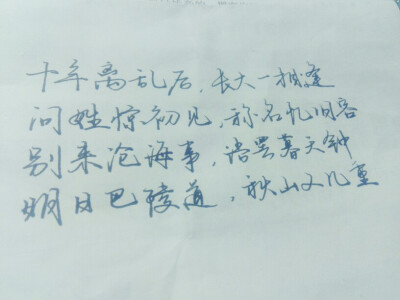 十年离乱后，长大一相逢
问姓惊初见，称名忆旧容
别来沧海事，语罢暮天钟
明日巴陵道，秋山又几重